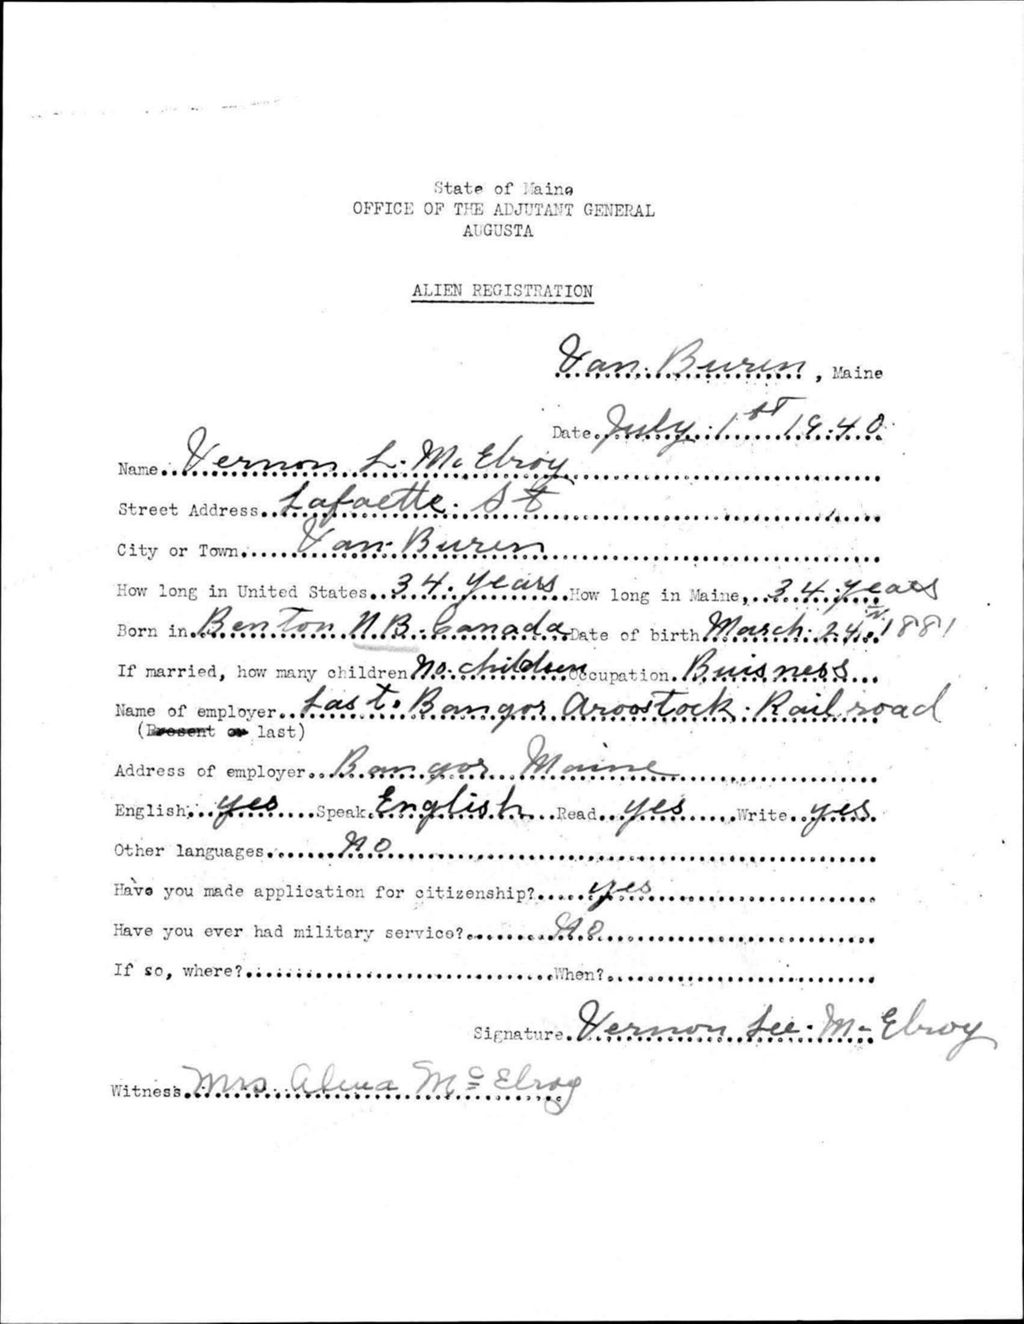 State of Maine
OFFICE OF THE ADJUTANT GENERAL
AUGUSTA
ALIEN REGISTRATION
Van Buren, Maine
Date July 1st 1940
Name Vernon L. McElroy
Street Address Lafaette St
City or Town Van Buren
How long in United States 34 years How long in Maine, 34 years
Born in Benton N.B. Canada Date of birth March 24th 1881
If married, how many children no children Occupation Buisness
Name of employer Last. Bangor Aroostock Railroad
(Present or last)
Address of employer Bangor Maine
English yes Speak English Read yes Write yes
Other languages No
Have you made application for citizenship? yes
Have you ever had military service? No
If so, where? When?
Signature Vernon Lee McElroy
Witness Mrs McElroy